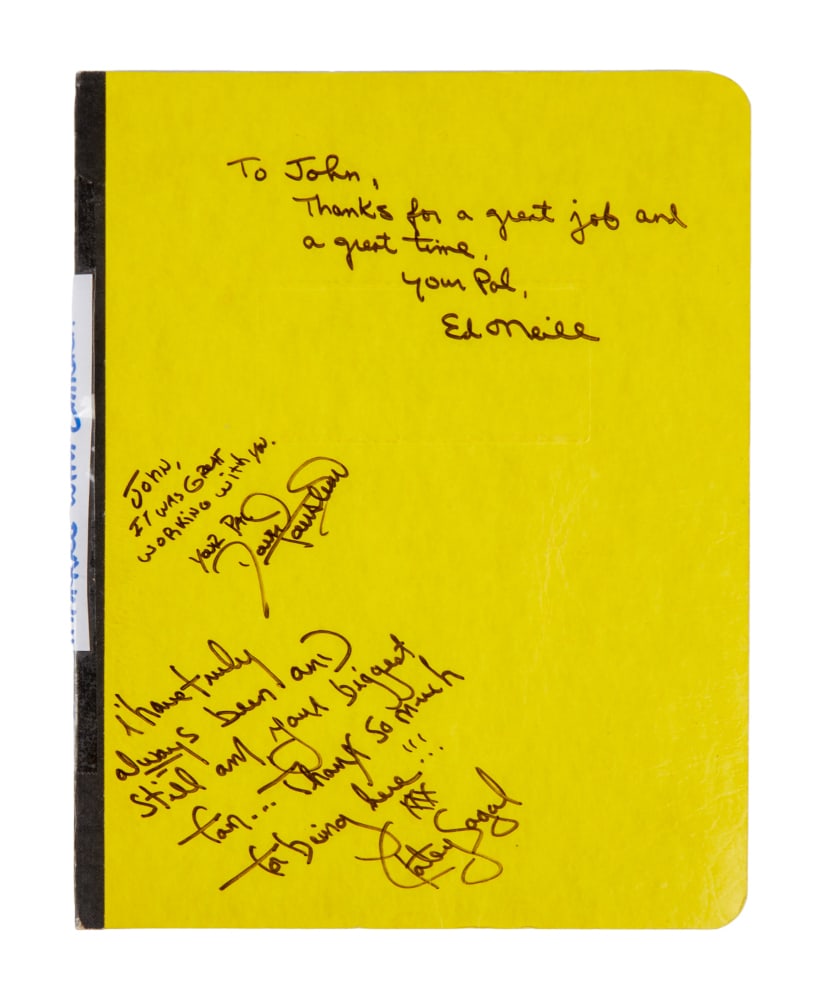 To John,
Thanks for a great job and
a great time.
your Pal,
Ed O'Neill
JOHN,
IT WAS GREAT
WORKING WITH YOU.
YOUR PAL
David Faustino
i have truly
always been (and)
still am your biggest
fan... Thanx so much
for being here!!!
XXX
Katey Sagal